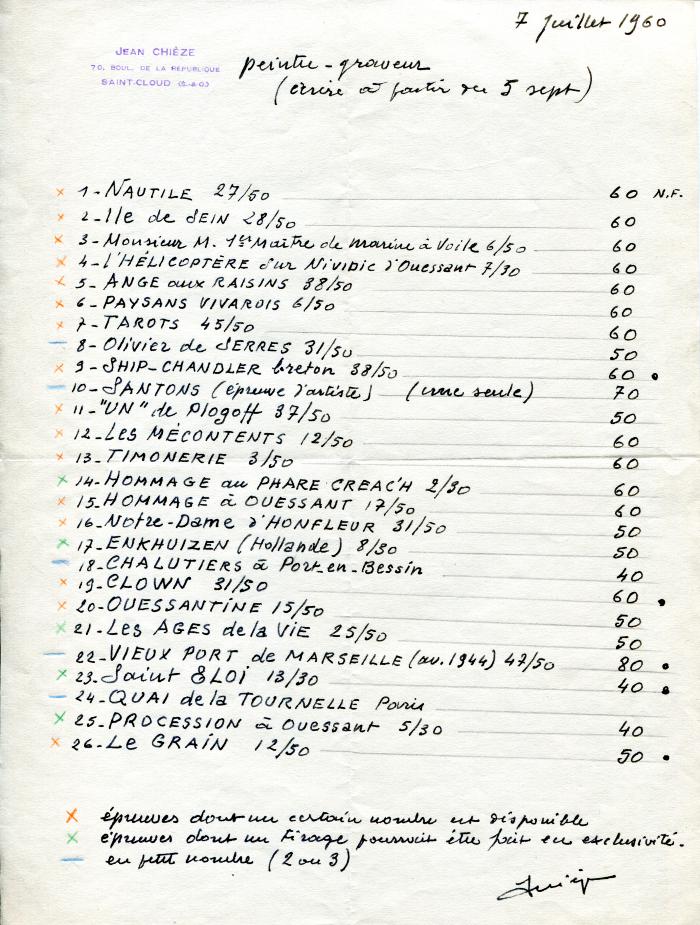 7 Juillet 1960
JEAN CHIÈZE
70, BOUL. DE LA RÉPUBLIQUE
SAINT-CLOUD (S.-&-O.)
peintre-graveur
(écrire à partir du 5 sept)
× 1- NAUTILE 27/50 60 N.F.
× 2- Ile de SEIN 28/50 60
× 3- Monsieur M. 1er Maître de marine à Voile 6/50 60
× 4- L'HÉLICOPTÈRE sur Nividic d'Ouessant 7/30 60
× 5- ANGE aux RAISINS 38/50 60
× 6- PAYSANS VIVAROIS 6/50 60
× 7- TAROTS 45/50 60
– 8- Olivier de SERRES 31/50 50
× 9- SHIP-CHANDLER breton 38/50 60 •
– 10- SANTONS (épreuve d'artiste) (une seule) 70
× 11- "UN" de Plogoff 37/50 50
× 12- Les MÉCONTENTS 12/50 60
× 13- TIMONERIE 3/50 60
× 14- HOMMAGE au PHARE CREAC'H 2/30 60
× 15- HOMMAGE à OUESSANT 17/50 60
× 16- Notre-Dame d'HONFLEUR 31/50 50
× 17- ENKHUIZEN (Hollande) 8/30 50
– 18- CHALUTIERS à Port-en-Bessin 40
× 19- CLOWN 31/50 60 •
× 20- OUESSANTINE 15/50 50
× 21- Les AGES de la VIE 25/50 50
– 22- VIEUX PORT de MARSEILLE (av. 1944) 47/50 80 •
× 23- Saint ELOI 13/30 40 •
– 24- QUAI de la TOURNELLE Paris
× 25- PROCESSION à Ouessant 5/30 40
× 26- Le GRAIN 12/50 50 •
× épreuves dont un certain nombre est disponible
× épreuves dont un tirage pourrait être fait en exclusivité.
– en petit nombre (2 ou 3)